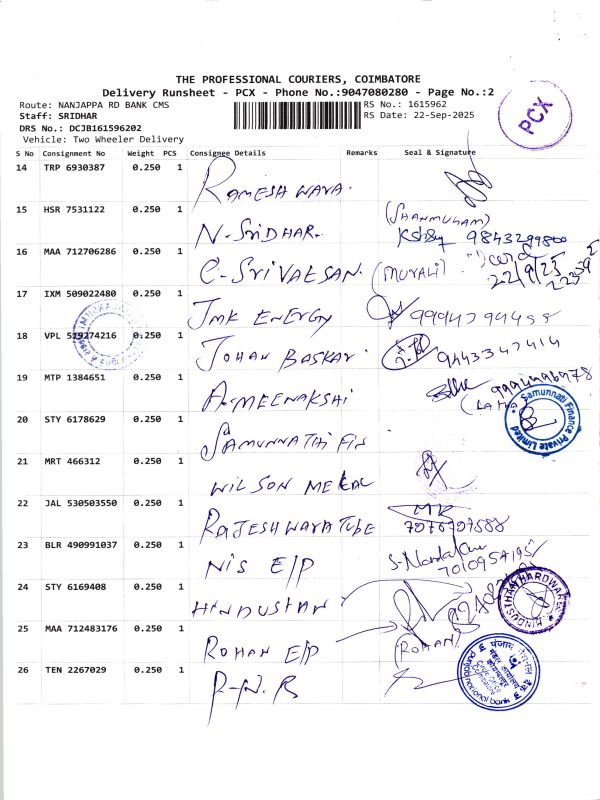 THE PROFESSIONAL COURIERS, COIMBATORE
Delivery Runsheet - PCX - Phone No.:9047080280 - Page No.:2
Route: NANJAPPA RD BANK CMS
RS No.: 1615962
Staff: SRIDHAR
RS Date: 22-Sep-2025
DRS No.: DCJB161596202
Vehicle: Two Wheeler Delivery
PCX
S No Consignment No Weight PCS Consignee Details Remarks Seal & Signature
14 TRP 6930387 0.250 1 RAMESHWARA.
15 HSR 7531122 0.250 1 N-SRIDHAR. (SHANMUGAM)
16 MAA 712706286 0.250 1 C-SRIVATSAN. (MURALI) 22/9/25
17 IXM 509022480 0.250 1 JMK ENERGY
18 VPL 519274216 0.250 1 JOHAN BASKAR. 9443347414
19 MTP 1384651 0.250 1 A-MEENAKSHI (LATHA)
20 STY 6178629 0.250 1 SAMUNNATHI FIN
Samunnati Finance Private Limited
21 MRT 466312 0.250 1 WILSON
22 JAL 530503550 0.250 1 RAJESHWARA TUBE MK
23 BLR 490991037 0.250 1 NIS E/P
24 STY 6169408 0.250 1 HINDUSTAN
HINDUSTHAN HARDWARE
25 MAA 712483176 0.250 1 ROHAN E/P (ROHAN)
26 TEN 2267029 0.250 1 P-N.B
national bank